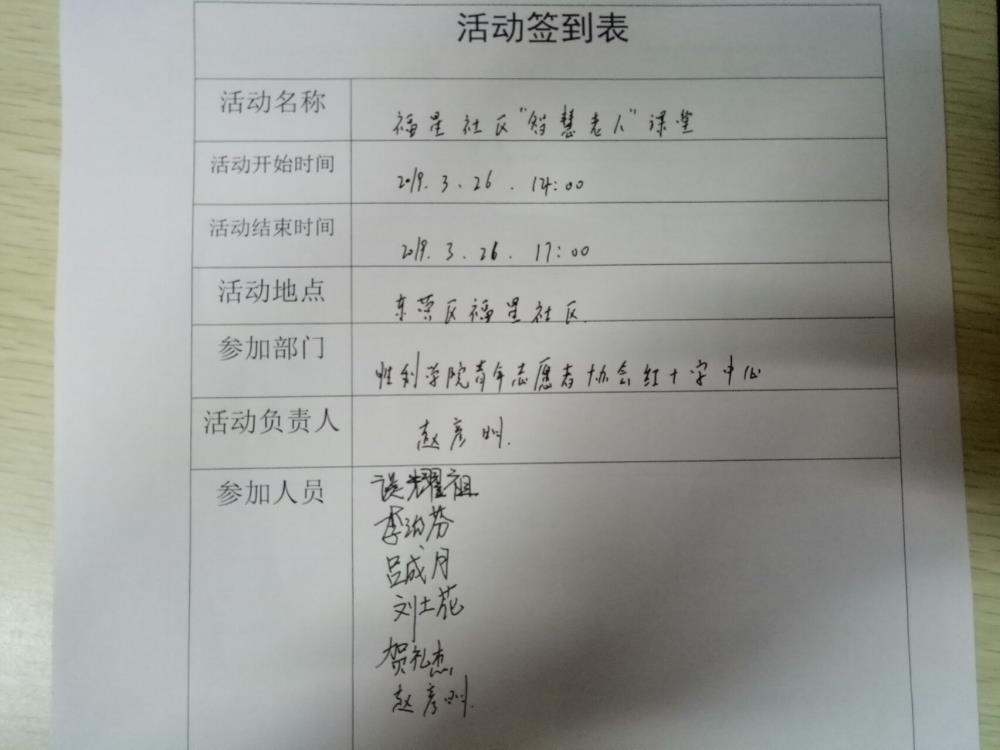 活动签到表
活动名称 福星社区"智慧老人"课堂
活动开始时间 2019.3.26.14:00
活动结束时间 2019.3.26.17:00
活动地点 东营区福星社区
参加部门 胜利学院青年志愿者协会红十字中心
活动负责人 赵彦
参加人员 耀祖
李
吕成月
刘士花
贺礼杰
赵彦